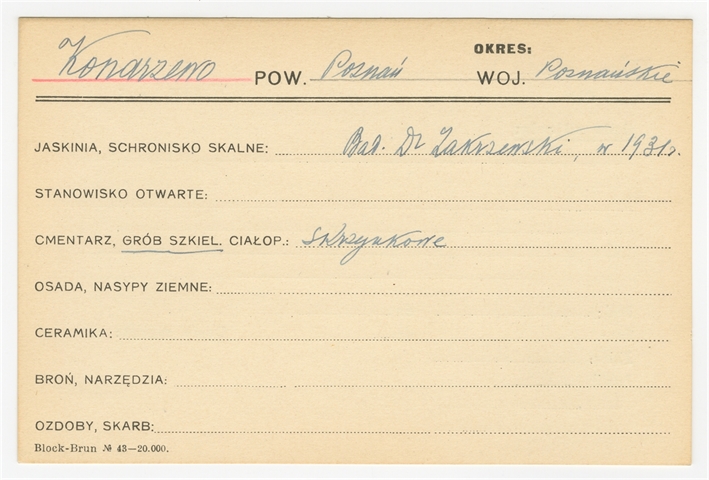 OKRES:
Konarzewo POW. Poznań WOJ. Poznańskie
JASKINIA, SCHRONISKO SKALNE: Bad. Dr Zakrzewski, w 1931 r.
STANOWISKO OTWARTE:
CMENTARZ, GRÓB SZKIEL. CIAŁOP.: skrzynkowe
OSADA, NASYPY ZIEMNE:
CERAMIKA:
BROŃ, NARZĘDZIA:
OZDOBY, SKARB:
Block-Brun № 43—20.000.